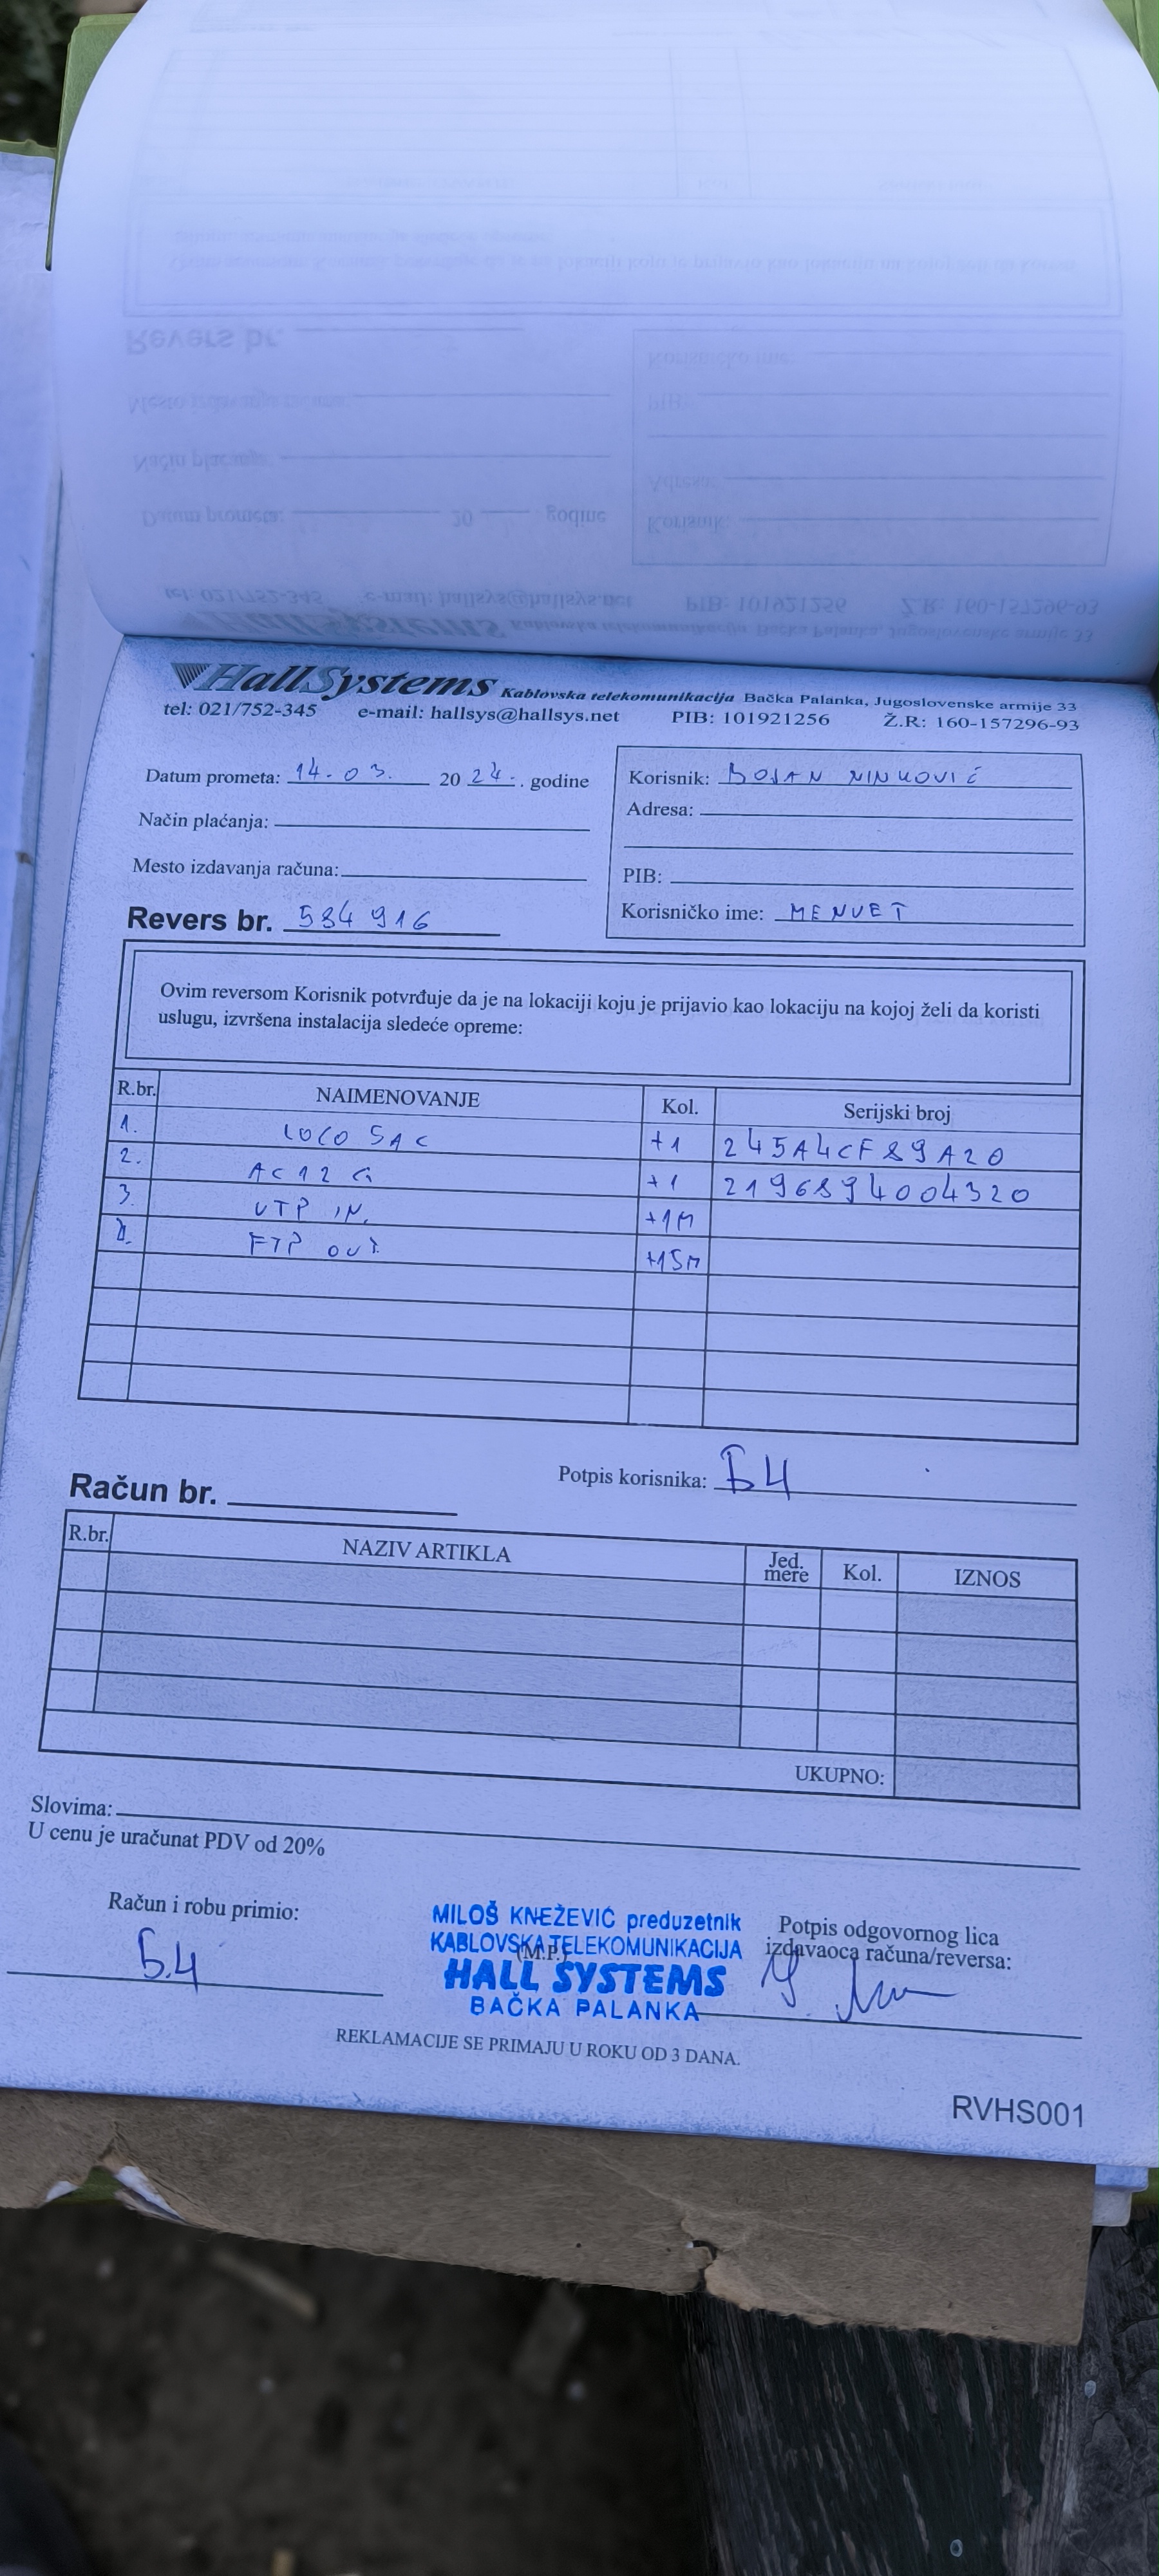 HallSystems Kablovska telekomunikacija Bačka Palanka, Jugoslovenske armije 33
tel: 021/752-345 e-mail: hallsys@hallsys.net PIB: 101921256 Ž.R: 160-157296-93
Datum prometa: 14.03. 20 24. godine
Način plaćanja:
Mesto izdavanja računa:
Korisnik: BOJAN NINKOVIĆ
Adresa:
PIB:
Korisničko ime: MENUET
Revers br. 584916
Ovim reversom Korisnik potvrđuje da je na lokaciji koju je prijavio kao lokaciju na kojoj želi da koristi
uslugu, izvršena instalacija sledeće opreme:
R.br. NAIMENOVANJE Kol. Serijski broj
1. LOCO 5AC +1 245A4CF89A20
2. AC12G +1 2196894004320
3. UTP IN. +1M
4. FTP OUT. +15M
Potpis korisnika: БЧ
Račun br.
R.br. NAZIV ARTIKLA Jed. mere Kol. IZNOS
UKUPNO:
Slovima:
U cenu je uračunat PDV od 20%
Račun i robu primio:
Б.Ч
MILOŠ KNEŽEVIĆ preduzetnik
KABLOVSKA TELEKOMUNIKACIJA
(M.P.)
HALL SYSTEMS
BAČKA PALANKA
Potpis odgovornog lica
izdavaoca računa/reversa:
REKLAMACIJE SE PRIMAJU U ROKU OD 3 DANA.
RVHS001